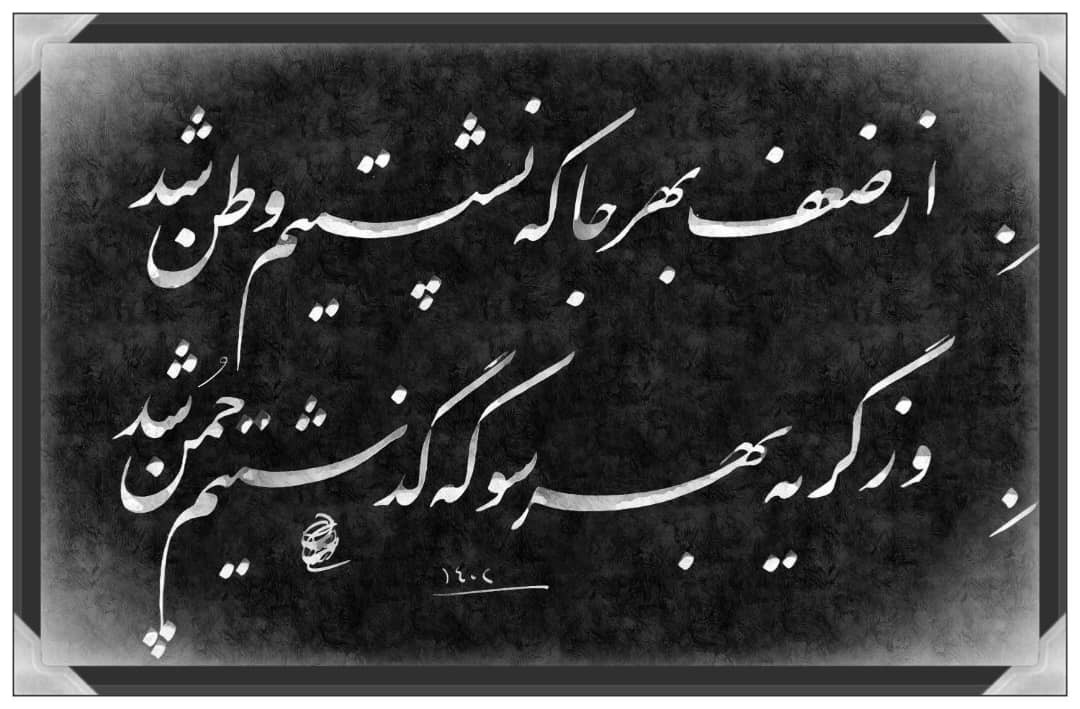 از ضعف بهر جا که نشستیم وطن شد
وز گریه بهر سو که گذشتیم چمن شد
۱۴۰۲